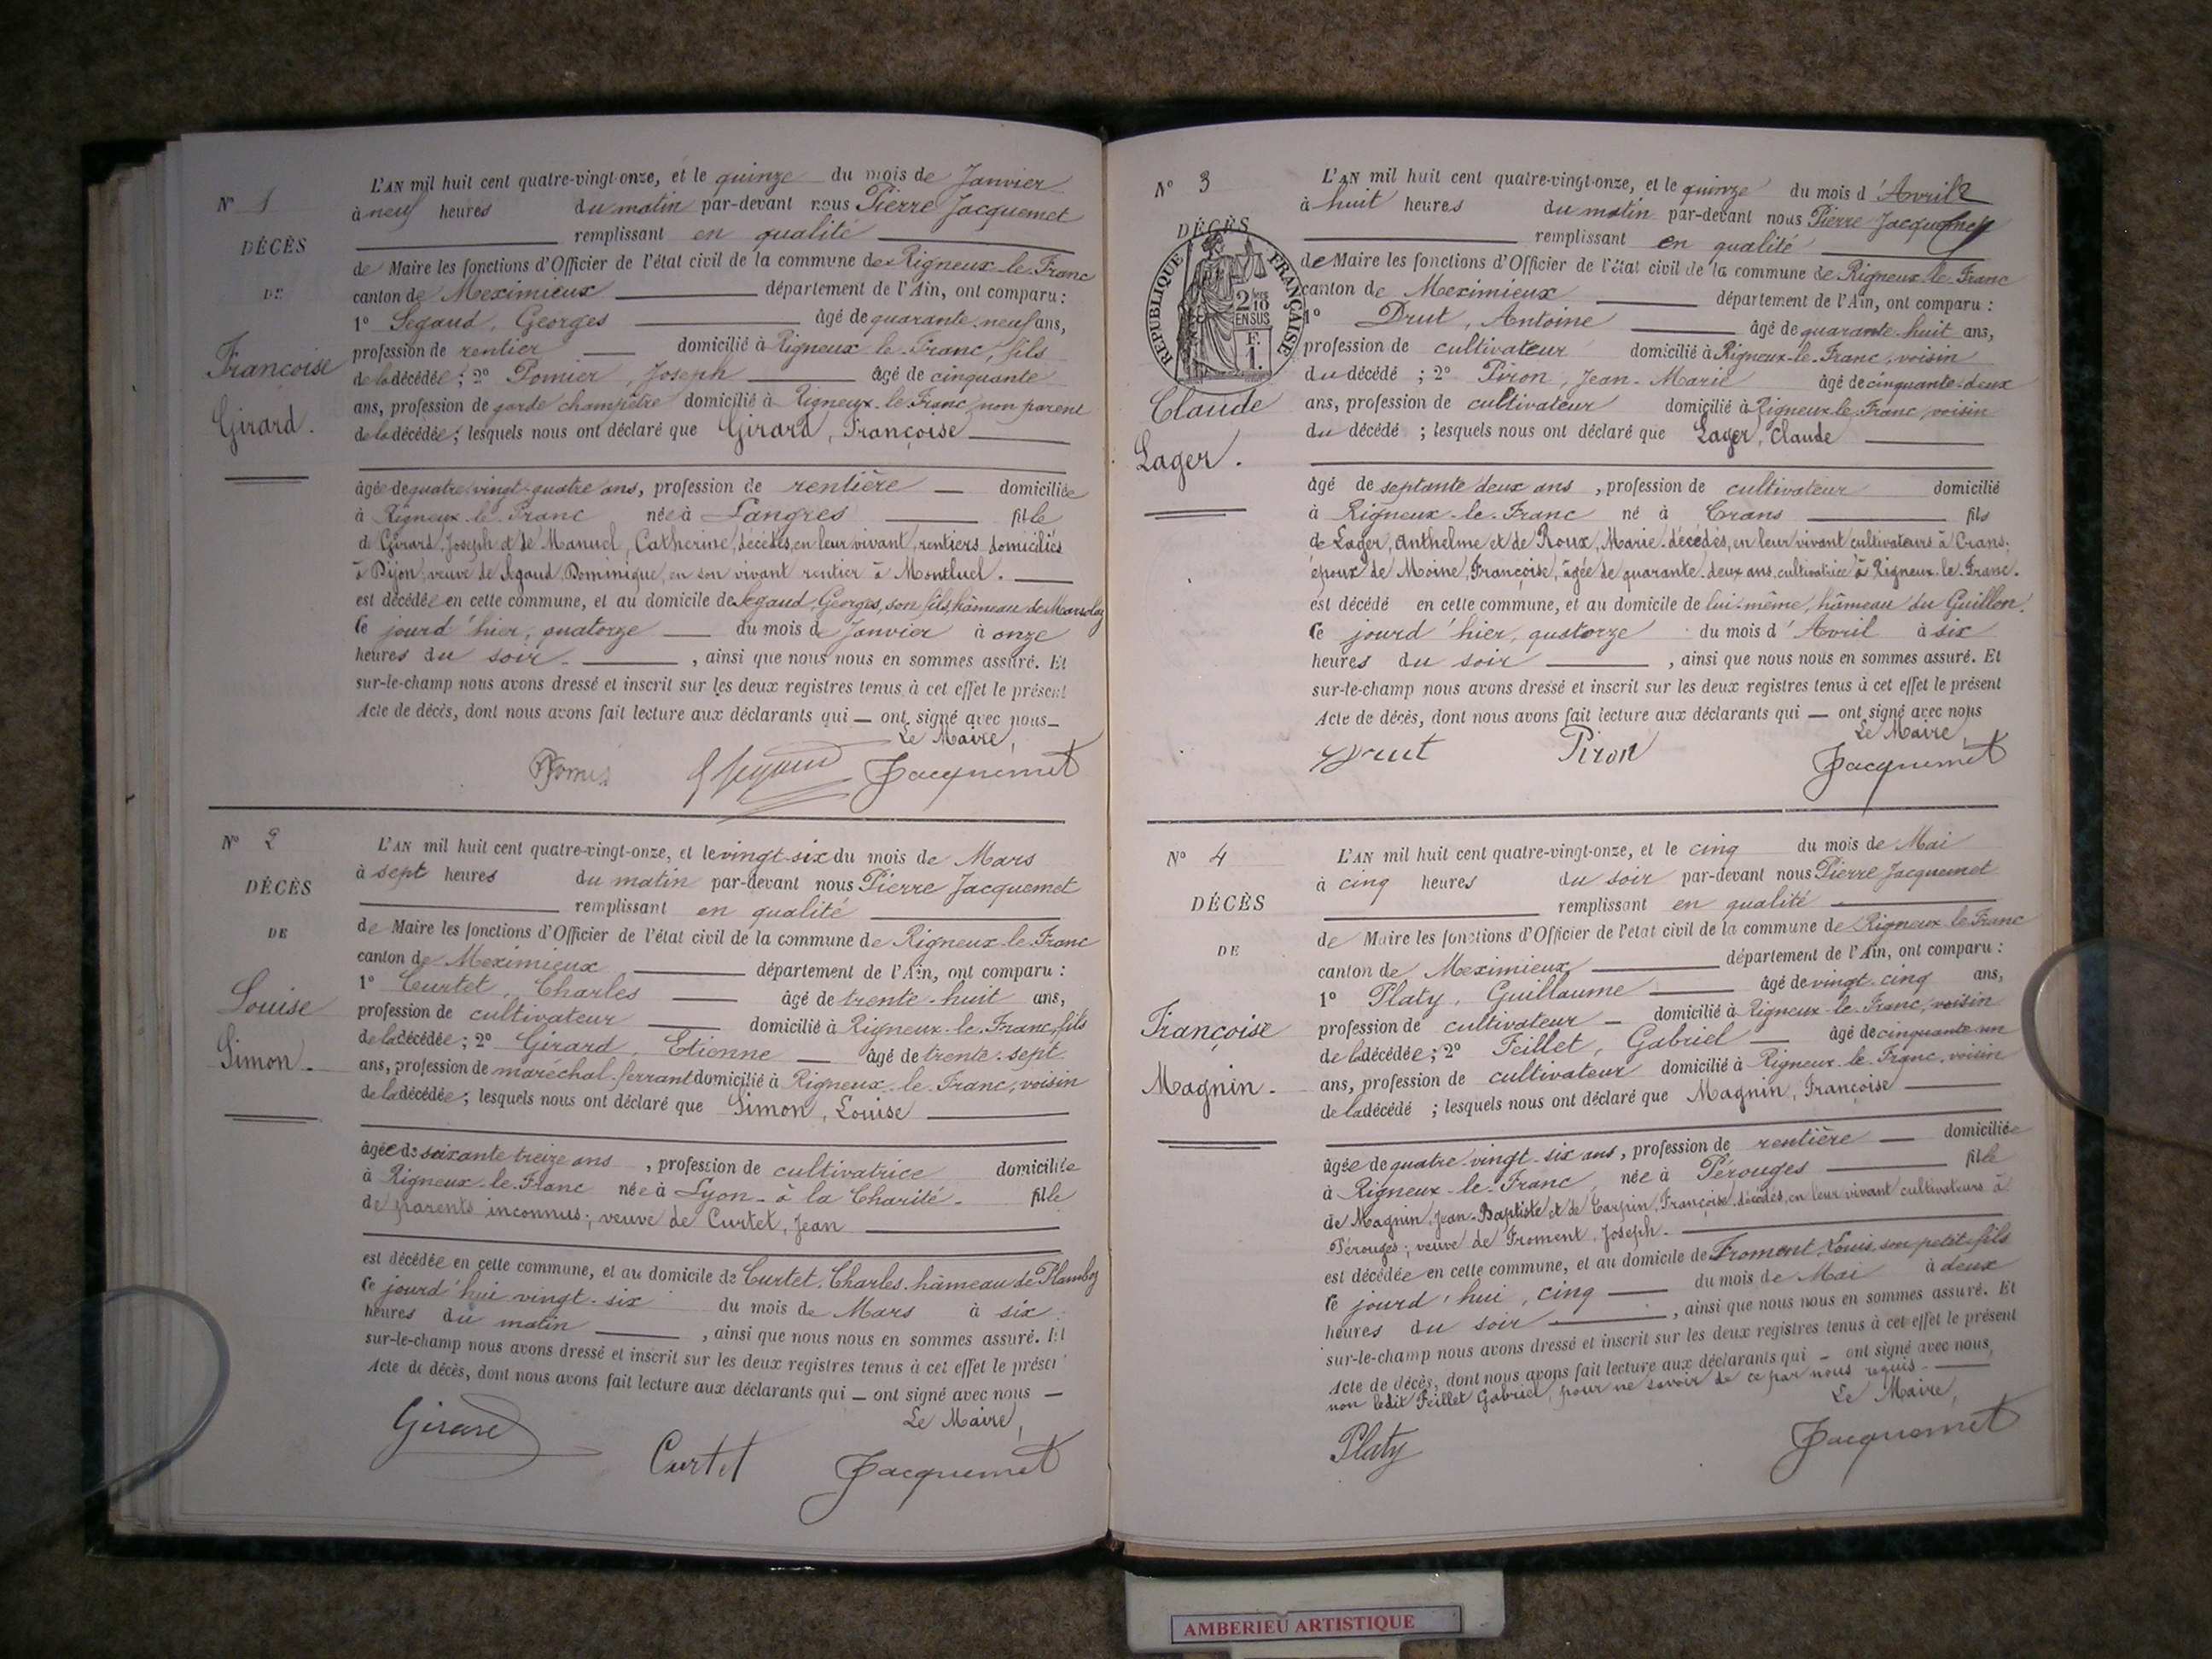 N° 1
DÉCÈS
DE
Françoise
Girard.
L'AN mil huit cent quatre-vingt-onze, et le quinze du mois de Janvier
à neuf heures du matin par-devant nous Pierre Jacquemet
remplissant en qualité
de Maire les fonctions d'Officier de l'état civil de la commune de Rigneux-le-Franc
canton de Meximieux département de l'Ain, ont comparu :
1° Segaud, Georges âgé de quarante-neuf ans,
profession de rentier domicilié à Rigneux-le-Franc, fils
de la décédée ; 2° Pomier, Joseph âgé de cinquante
ans, profession de garde champêtre domicilié à Rigneux-le-Franc, non parent
de la décédée ; lesquels nous ont déclaré que Girard, Françoise
âgée de quatre-vingt-quatre ans, profession de rentière domiciliée
à Rigneux-le-Franc née à Langres fille
de Girard, Joseph et de Manuel, Catherine, décédés, en leur vivant, rentiers domiciliés
à Dijon, veuve de Segaud, Dominique, en son vivant rentier à Montluel.
est décédée en cette commune, et au domicile de Segaud, Georges, son fils, hâmeau de
ce jourd'hier, quatorze du mois de Janvier à onze
heures du soir, ainsi que nous nous en sommes assuré. Et
sur-le-champ nous avons dressé et inscrit sur les deux registres tenus à cet effet le présent
Acte de décès, dont nous avons fait lecture aux déclarants qui — ont signé avec nous —
Le Maire,
Jacquemet
N° 2
DÉCÈS
DE
Louise
Simon.
L'AN mil huit cent quatre-vingt-onze, et le vingt-six du mois de Mars
à sept heures du matin par-devant nous Pierre Jacquemet
remplissant en qualité
de Maire les fonctions d'Officier de l'état civil de la commune de Rigneux-le-Franc
canton de Meximieux département de l'Ain, ont comparu :
1° Curtet, Charles âgé de trente-huit ans,
profession de cultivateur domicilié à Rigneux-le-Franc, fils
de la décédée ; 2° Girard, Etienne âgé de trente-sept
ans, profession de maréchal-ferrant domicilié à Rigneux-le-Franc, voisin
de la décédée ; lesquels nous ont déclaré que Simon, Louise
âgée de soixante treize ans, profession de cultivatrice domiciliée
à Rigneux-le-Franc née à Lyon - à la Charité - fille
de parents inconnus ; veuve de Curtet, Jean
est décédée en cette commune, et au domicile de Curtet, Charles, hâmeau de
ce jourd'hui vingt-six du mois de Mars à six
heures du matin, ainsi que nous nous en sommes assuré. Et
sur-le-champ nous avons dressé et inscrit sur les deux registres tenus à cet effet le présent
Acte de décès, dont nous avons fait lecture aux déclarants qui — ont signé avec nous —
Le Maire,
Girard
Curtet Jacquemet
N° 3
DÉCÈS
RÉPUBLIQUE FRANÇAISE
2/10
EN SUS
Claude
Lager.
L'AN mil huit cent quatre-vingt-onze, et le quinze du mois d'Avril
à huit heures du matin par-devant nous Pierre Jacquemet
remplissant en qualité
de Maire les fonctions d'Officier de l'état civil de la commune de Rigneux-le-Franc
canton de Meximieux département de l'Ain, ont comparu :
1° Drut, Antoine âgé de quarante-huit ans,
profession de cultivateur domicilié à Rigneux-le-Franc, voisin
du décédé ; 2° Piron, Jean-Marie âgé de cinquante-deux
ans, profession de cultivateur domicilié à Rigneux-le-Franc, voisin
du décédé ; lesquels nous ont déclaré que Lager, Claude
âgé de septante deux ans, profession de cultivateur domicilié
à Rigneux-le-Franc né à Crans fils
de Lager, Anthelme et de Roux, Marie, décédés, en leur vivant cultivateurs à Crans ;
époux de Moine, Françoise, âgée de quarante-deux ans, cultivatrice à Rigneux-le-Franc.
est décédé en cette commune, et au domicile de lui-même, hâmeau du Guillon.
ce jourd'hier, quatorze du mois d'Avril à six
heures du soir, ainsi que nous nous en sommes assuré. Et
sur-le-champ nous avons dressé et inscrit sur les deux registres tenus à cet effet le présent
Acte de décès, dont nous avons fait lecture aux déclarants qui — ont signé avec nous
Le Maire,
Drut Piron Jacquemet
N° 4
DÉCÈS
DE
Françoise
Magnin.
L'AN mil huit cent quatre-vingt-onze, et le cinq du mois de Mai
à cinq heures du soir par-devant nous Pierre Jacquemet
remplissant en qualité
de Maire les fonctions d'Officier de l'état civil de la commune de Rigneux-le-Franc
canton de Meximieux département de l'Ain, ont comparu :
1° Platy, Guillaume âgé de vingt-cinq ans,
profession de cultivateur domicilié à Rigneux-le-Franc, voisin
de la décédée ; 2° Feillet, Gabriel âgé de cinquante-un
ans, profession de cultivateur domicilié à Rigneux-le-Franc, voisin
de la décédé ; lesquels nous ont déclaré que Magnin, Françoise
âgée de quatre-vingt-six ans, profession de rentière domiciliée
à Rigneux-le-Franc, née à Pérouges fille
de Magnin, Jean-Baptiste et de Carpin, Françoise, décédés, en leur vivant cultivateurs à
Pérouges ; veuve de Froment, Joseph.
est décédée en cette commune, et au domicile de Froment, Louis, son petit-fils
ce jourd'hui, cinq du mois de Mai à deux
heures du soir, ainsi que nous nous en sommes assuré. Et
sur-le-champ nous avons dressé et inscrit sur les deux registres tenus à cet effet le présent
Acte de décès, dont nous avons fait lecture aux déclarants qui — ont signé avec nous,
non ledit Feillet Gabriel, pour ne savoir de ce par nous requis.
Le Maire,
Platy Jacquemet
AMBERIEU ARTISTIQUE